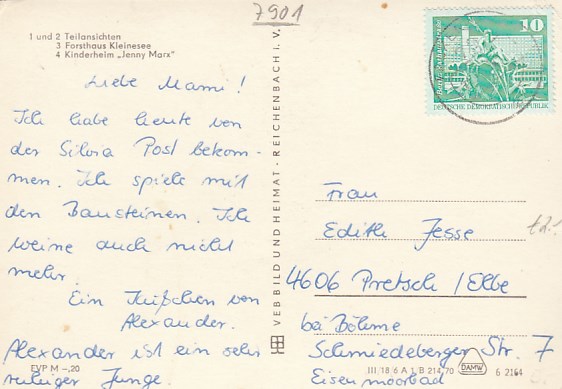 7901
1 und 2 Teilansichten
3 Forsthaus Kleinesee
4 Kinderheim „Jenny Marx"
Liebe Mami!
Ich habe heute von
der Silvia Post bekom-
men. Ich spiele mit
den Bausteinen. Ich
weine auch nicht
mehr.
Ein Küßchen von
Alexander.
Alexander ist ein sehr
ruhiger Junge.
EVP M –,20
VEB BILD UND HEIMAT · REICHENBACH I. V.
10
DEUTSCHE DEMOKRATISCHE REPUBLIK
Frau
Edith Jesse
4606 Pretsch / Elbe
bei Böhme
Schmiedeberger Str. 7
Eisenmoorbad
III 18 6 A 1 B 214 70
DAMW
6 2164